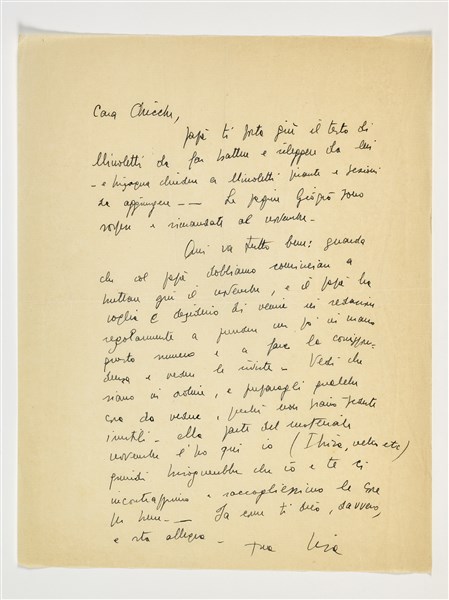 Cara Chicchi,
papà ti porta giù il testo di
Minoletti da far battere e rileggere da lui
– e bisogna chiedere a Minoletti piante e sezioni
da aggiungere — Le pagine Giò sono
sospese e rimandate al novembre –
Qui va tutto bene: guarda
che col papà dobbiamo cominciare a
buttar giù il novembre, e il papà ha
voglia e desiderio di venire in redazione
regolarmente a prendere un po' in mano
questo numero e a fare la corrispon-
denza e vedere le riviste – Vedi che
siano in ordine, e preparagli qualche
cosa da vedere, perché non siano sedute
inutili – alla parte del materiale
novembre l'ho qui io (Ibiza, etc)
quindi bisognerebbe che io e te ci
incontrassimo e raccogliessimo le cose
in bene — Fa come ti dico, davvero,
e sta allegra – tua Lisa